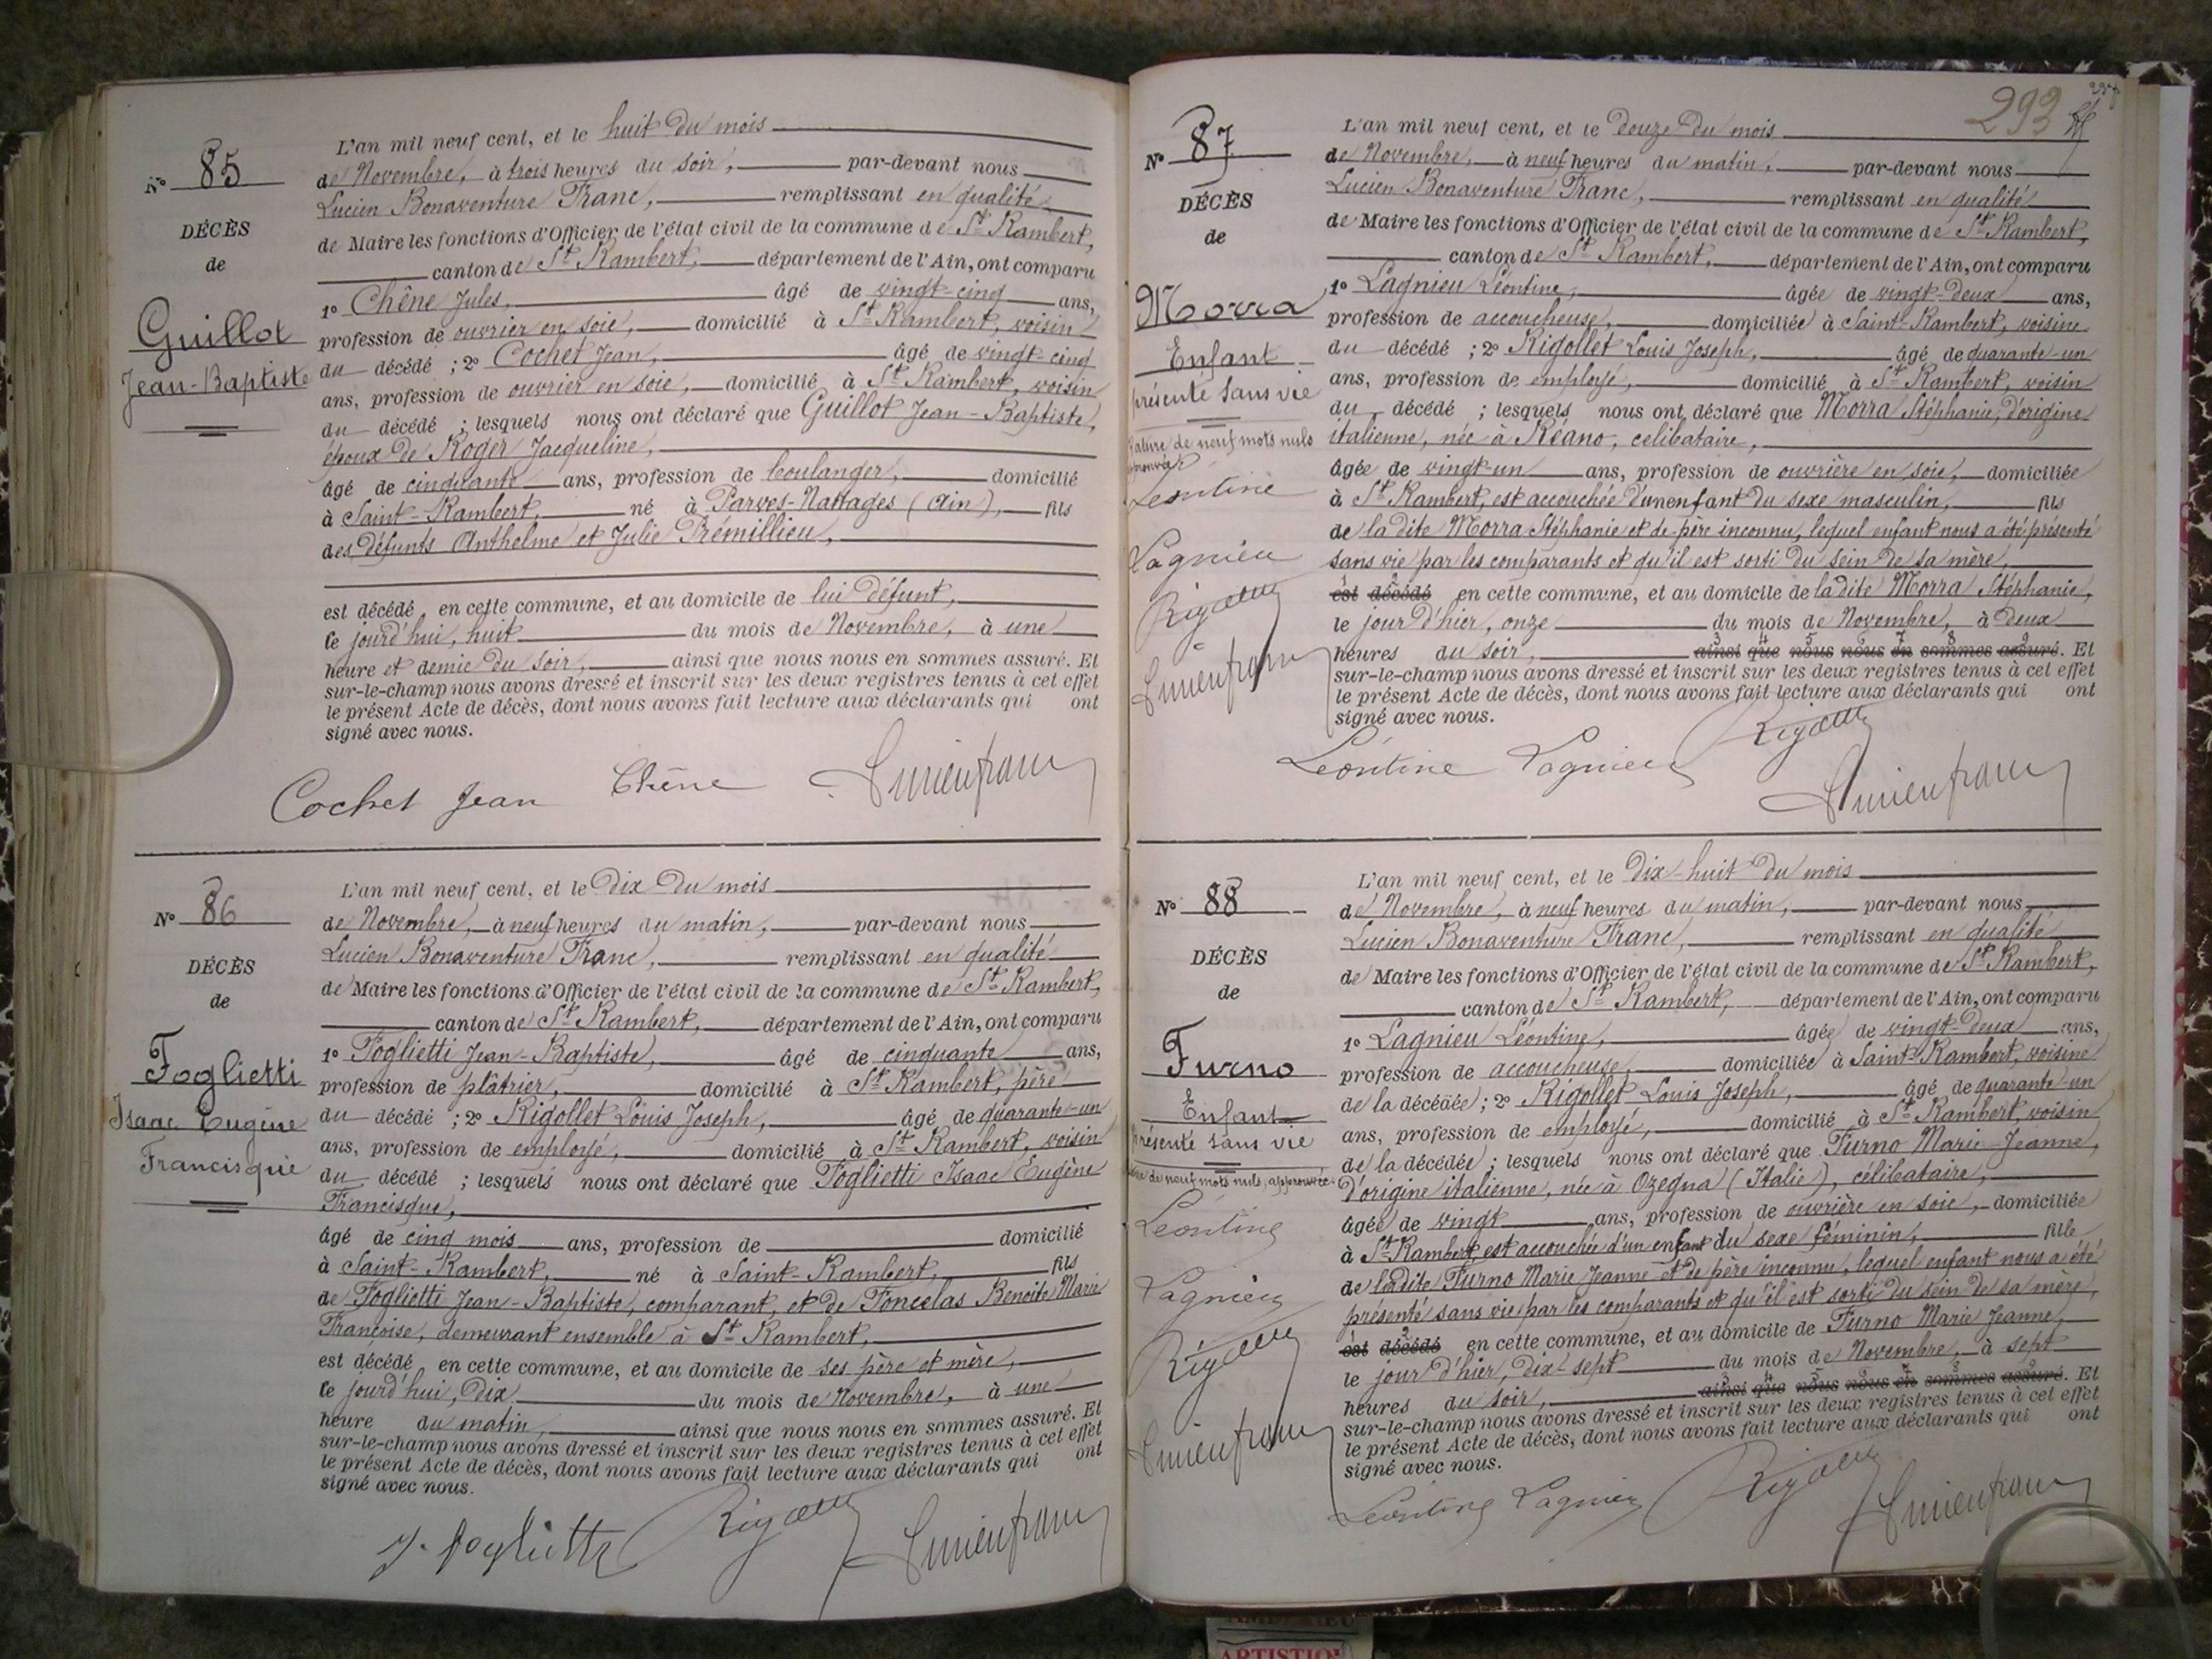 N° 85
DÉCÈS
de
Guillot
Jean-Baptiste
L'an mil neuf cent, et le huit du mois
de Novembre, à trois heures du soir, par-devant nous
Lucien Bonaventure Franc, remplissant en qualité
de Maire les fonctions d'Officier de l'état civil de la commune de St Rambert,
canton de St Rambert, département de l'Ain, ont comparu
1° Chêne Jules, âgé de vingt-cinq ans,
profession de ouvrier en soie, domicilié à St Rambert, voisin
du décédé ; 2° Cochet Jean, âgé de vingt-cinq
ans, profession de ouvrier en soie, domicilié à St Rambert, voisin
du décédé ; lesquels nous ont déclaré que Guillot Jean-Baptiste,
époux de Roger Jacqueline,
âgé de cinquante ans, profession de boulanger, domicilié
à Saint-Rambert, né à Parves-Nattages (Ain), fils
des défunts Anthelme et Julie Prémillieu,
est décédé en cette commune, et au domicile de lui défunt,
le jourd'hui, huit du mois de Novembre, à une
heure et demie du soir, ainsi que nous nous en sommes assuré. Et
sur-le-champ nous avons dressé et inscrit sur les deux registres tenus à cet effet
le présent Acte de décès, dont nous avons fait lecture aux déclarants qui ont
signé avec nous.
Cochet Jean Chêne Lucien franc
N° 86
DÉCÈS
de
Foglietti
Isaac Eugène
Francisque
L'an mil neuf cent, et le dix du mois
de Novembre, à neuf heures du matin, par-devant nous
Lucien Bonaventure Franc, remplissant en qualité
de Maire les fonctions d'Officier de l'état civil de la commune de St Rambert,
canton de St Rambert, département de l'Ain, ont comparu
1° Foglietti Jean-Baptiste, âgé de cinquante ans,
profession de plâtrier, domicilié à St Rambert, père
du décédé ; 2° Rigollet Louis Joseph, âgé de quarante-un
ans, profession de employé, domicilié à St Rambert, voisin
du décédé ; lesquels nous ont déclaré que Foglietti Isaac Eugène
Francisque,
âgé de cinq mois ans, profession de domicilié
à Saint-Rambert, né à Saint-Rambert, fils
de Foglietti Jean-Baptiste, comparant, et de Foncelas Benoite Marie
Françoise, demeurant ensemble à St Rambert,
est décédé en cette commune, et au domicile de ses père et mère,
le jourd'hui, dix du mois de Novembre, à une
heure du matin, ainsi que nous nous en sommes assuré. Et
sur-le-champ nous avons dressé et inscrit sur les deux registres tenus à cet effet
le présent Acte de décès, dont nous avons fait lecture aux déclarants qui ont
signé avec nous.
J. Foglietti Rigollet Lucien franc
293
N° 87
DÉCÈS
de
Morra
Enfant
présenté sans vie
rature de neuf mots nuls
approuvée
Léontine
Lagnieu
Rigollet
Lucien franc
L'an mil neuf cent, et le douze du mois
de Novembre, à neuf heures du matin, par-devant nous
Lucien Bonaventure Franc, remplissant en qualité
de Maire les fonctions d'Officier de l'état civil de la commune de St Rambert,
canton de St Rambert, département de l'Ain, ont comparu
1° Lagnieu Léontine, âgée de vingt-deux ans,
profession de accoucheuse, domiciliée à Saint-Rambert, voisine
du décédé ; 2° Rigollet Louis Joseph, âgé de quarante-un
ans, profession de employé, domicilié à St Rambert, voisin
du décédé ; lesquels nous ont déclaré que Morra Stéphanie, d'origine
italienne, née à Réano, célibataire,
âgée de vingt-un ans, profession de ouvrière en soie, domiciliée
à St Rambert, est accouchée d'un enfant du sexe masculin, fils
de la dite Morra Stéphanie et de père inconnu, lequel enfant nous a été présenté
sans vie par les comparants et qu'il est sorti du sein de sa mère,
est décédé en cette commune, et au domicile de la dite Morra Stéphanie,
le jour d'hier, onze du mois de Novembre, à deux
heures du soir, ainsi que nous nous en sommes assuré. Et
sur-le-champ nous avons dressé et inscrit sur les deux registres tenus à cet effet
le présent Acte de décès, dont nous avons fait lecture aux déclarants qui ont
signé avec nous.
Léontine Lagnieu Rigollet
Lucien franc
N° 88
DÉCÈS
de
Furno
Enfant
présenté sans vie
de neuf mots nuls, approuvée
Léontine
Lagnieu
Rigollet
Lucien franc
L'an mil neuf cent, et le dix-huit du mois
de Novembre, à neuf heures du matin, par-devant nous
Lucien Bonaventure Franc, remplissant en qualité
de Maire les fonctions d'Officier de l'état civil de la commune de St Rambert,
canton de St Rambert, département de l'Ain, ont comparu
1° Lagnieu Léontine, âgée de vingt-deux ans,
profession de accoucheuse, domiciliée à Saint-Rambert, voisine
de la décédée ; 2° Rigollet Louis Joseph, âgé de quarante-un
ans, profession de employé, domicilié à St Rambert, voisin
de la décédée ; lesquels nous ont déclaré que Furno Marie-Jeanne,
d'origine italienne, née à Ozegna (Italie), célibataire,
âgée de vingt ans, profession de ouvrière en soie, domiciliée
à St Rambert, est accouchée d'un enfant du sexe féminin, fille
de ladite Furno Marie Jeanne et de père inconnu, lequel enfant nous a été
présenté sans vie par les comparants et qu'il est sorti du sein de sa mère,
est décédé en cette commune, et au domicile de Furno Marie Jeanne,
le jour d'hier, dix-sept du mois de Novembre, à sept
heures du soir, ainsi que nous nous en sommes assuré. Et
sur-le-champ nous avons dressé et inscrit sur les deux registres tenus à cet effet
le présent Acte de décès, dont nous avons fait lecture aux déclarants qui ont
signé avec nous.
Léontine Lagnieu Rigollet Lucien franc
ARTISTIQU